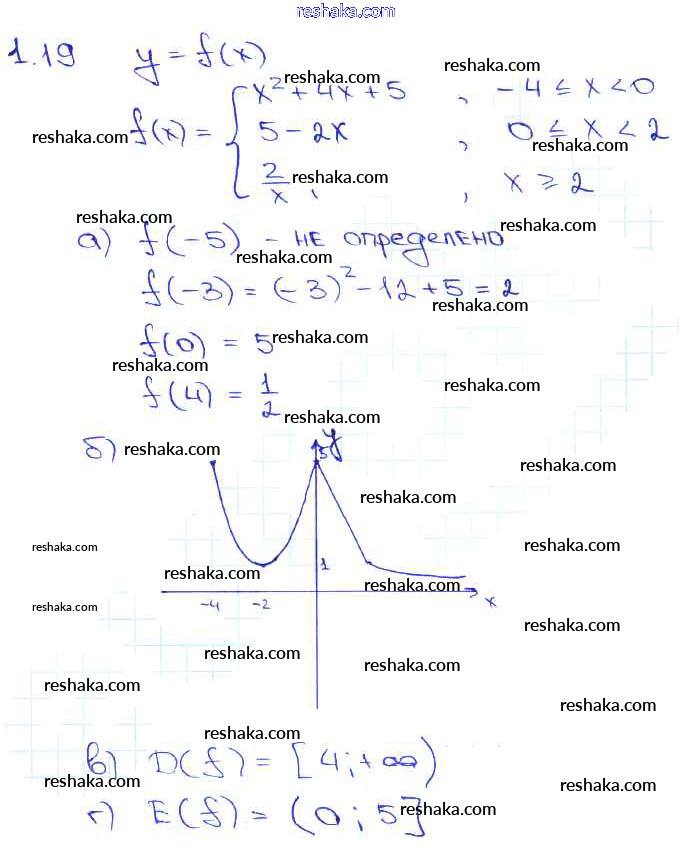 reshaka.com
1.19 y = f(x)
reshaka.com reshaka.com
x² + 4x + 5 , -4 ≤ x < 0
reshaka.com f(x) = { 5 - 2x , 0 ≤ x < 2
reshaka.com
2/x , reshaka.com , x ≥ 2
reshaka.com reshaka.com
а) f(-5) - не определено
reshaka.com
f(-3) = (-3)² - 12 + 5 = 2
reshaka.com
f(0) = 5 reshaka.com
reshaka.com
f(4) = 1/2 reshaka.com
reshaka.com
б) reshaka.com y
5
reshaka.com
reshaka.com
reshaka.com reshaka.com
reshaka.com 1
reshaka.com
-4 -2 x
reshaka.com
reshaka.com
reshaka.com reshaka.com
reshaka.com
reshaka.com
reshaka.com
в) D(f) = [4; +∞)
reshaka.com reshaka.com
г) E(f) = (0; 5]
reshaka.com